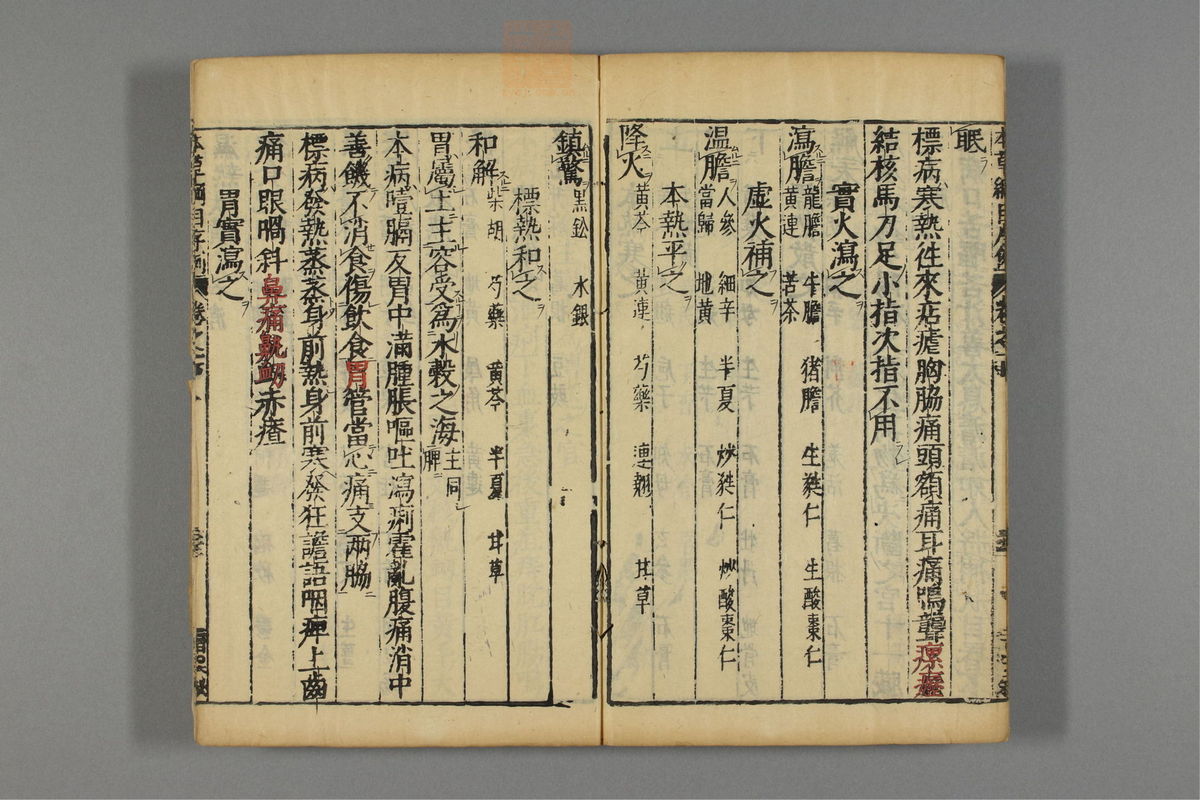 眠
標病寒熱往來痁瘧胸脇痛頭額痛耳痛鳴聾瘰癧
結核馬刀足小指次指不用
實火瀉之
瀉膽 龍膽 牛膽 猪膽 生蕤仁 生酸棗仁
黄連 苦茶
虚火補之
温膽 人參 細辛 半夏 炒蕤仁 炒酸棗仁
當歸 地黄
本熱平之
降火 黄芩 黄連 芍藥 連翹 甘草
鎮驚 黒鉛 水銀
標熱和之
和解 柴胡 芍藥 黄芩 半夏 甘草
胃屬土主容受爲水穀之海 主同脾
本病噎膈反胃中滿腫脹嘔吐瀉痢霍亂腹痛消中
善饑不消食傷飲食胃管當心痛支兩脇
標病發熱蒸蒸身前熱身前寒發狂譫語咽痺上齒
痛口眼喎斜鼻痛鼽衄赤瘡
胃實瀉之